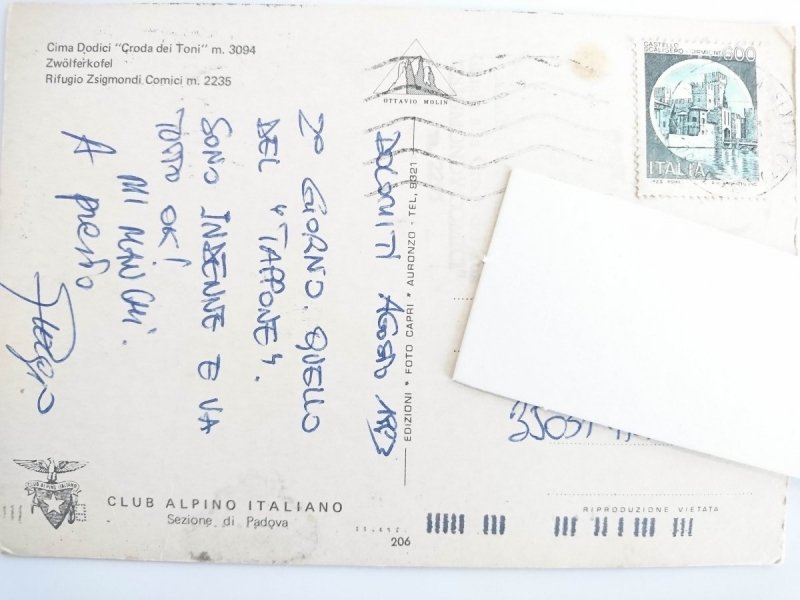 Cima Dodici "Croda dei Toni" m. 3094
Zwölferkofel
Rifugio Zsigmondi Comici m. 2235
OTTAVIO MOLIN
CASTELLO
SCALIGERO - SIRMIONE
600
ITALIA
DOLOMITI AGOSTO 1993
2° GIORNO QUELLO
DEL "TAPPONE".
SONO INDENNE E VA
TUTTO OK!
MI MANCHI.
A presto
EDIZIONI * FOTO CAPRI * AURONZO - TEL. 9321
CLUB ALPINO ITALIANO
CLUB ALPINO ITALIANO
Sezione di Padova
206
RIPRODUZIONE VIETATA